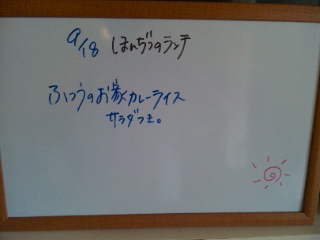 9/18 ほんぢつのランチ
ふつうのお家カレーライス
サラダつき。